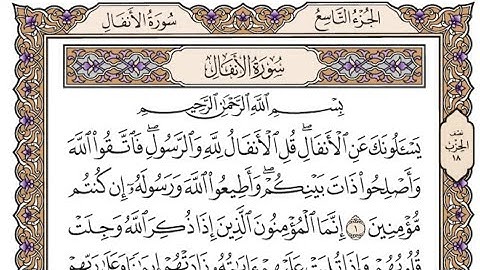 سُورَةُ الأَنفَالِ
الجُزْءُ التَّاسِعُ
سُورَةُ الأَنفَالِ
بِسْمِ ٱللَّهِ ٱلرَّحْمَٰنِ ٱلرَّحِيمِ
يَسْـَٔلُونَكَ عَنِ ٱلْأَنفَالِ ۖ قُلِ ٱلْأَنفَالُ لِلَّهِ وَٱلرَّسُولِ ۖ فَٱتَّقُوا۟ ٱللَّهَ
وَأَصْلِحُوا۟ ذَاتَ بَيْنِكُمْ ۖ وَأَطِيعُوا۟ ٱللَّهَ وَرَسُولَهُۥٓ إِن كُنتُم
مُّؤْمِنِينَ ١ إِنَّمَا ٱلْمُؤْمِنُونَ ٱلَّذِينَ إِذَا ذُكِرَ ٱللَّهُ وَجِلَتْ
قُلُوبُهُمْ وَإِذَا تُلِيَتْ عَلَيْهِمْ ءَايَٰتُهُۥ زَادَتْهُمْ إِيمَٰنًا وَعَلَىٰ رَبِّهِمْ
نصف
الحزب
١٨